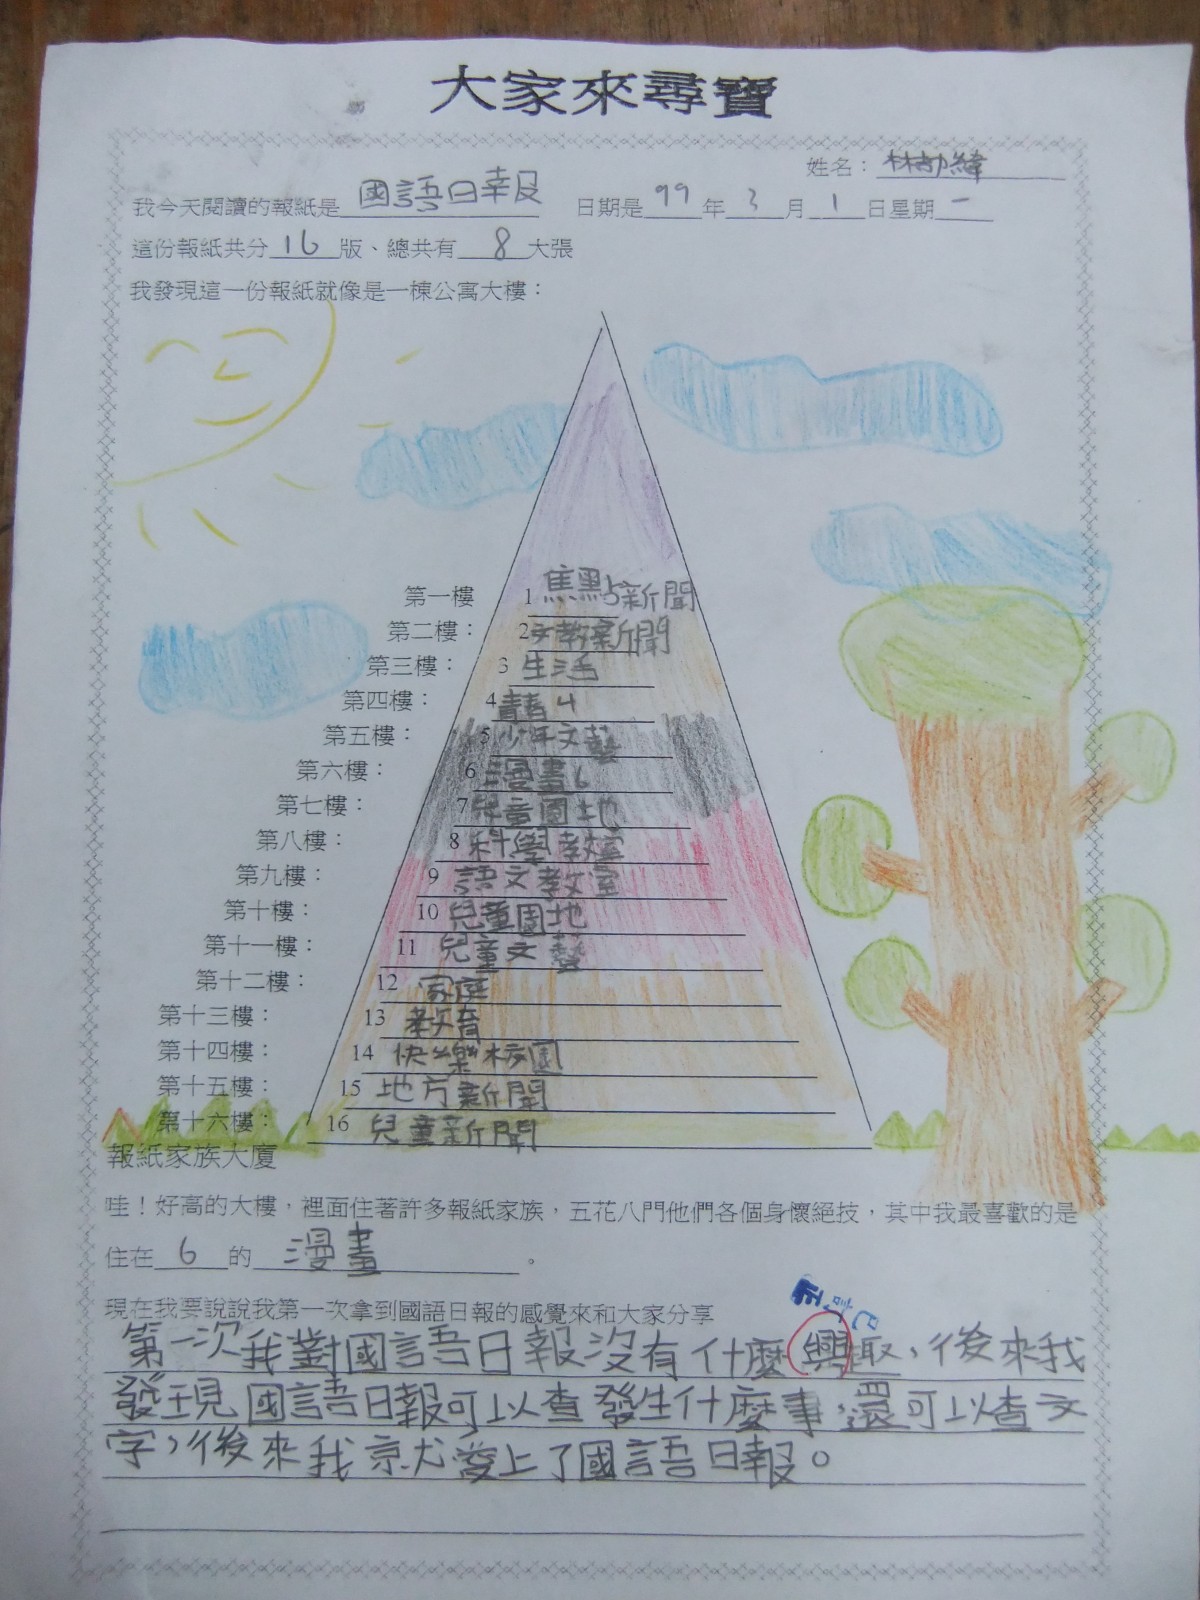 大家來尋寶
姓名：林
我今天閱讀的報紙是國語日報 日期是99年3月1日星期一
這份報紙共分16版、總共有8大張
我發現這一份報紙就像是一棟公寓大樓：
第一樓 1焦點新聞
第二樓： 2文教新聞
第三樓： 3生活
第四樓： 4青春4
第五樓： 5少年文藝
第六樓： 6漫畫6
第七樓： 7兒童園地
第八樓： 8科學教室
第九樓： 9語文教室
第十樓： 10兒童園地
第十一樓： 11兒童文藝
第十二樓： 12家庭
第十三樓： 13教育
第十四樓： 14快樂校園
第十五樓： 15地方新聞
第十六樓： 16兒童新聞
報紙家族大廈
哇！好高的大樓，裡面住著許多報紙家族，五花八門他們各個身懷絕技，其中我最喜歡的是
住在6的漫畫。
現在我要說說我第一次拿到國語日報的感覺來和大家分享
已訂正
第一次我對國語日報沒有什麼興趣，後來我
發現國語日報可以查發生什麼事，還可以查文
字，後來我就愛上了國語日報。